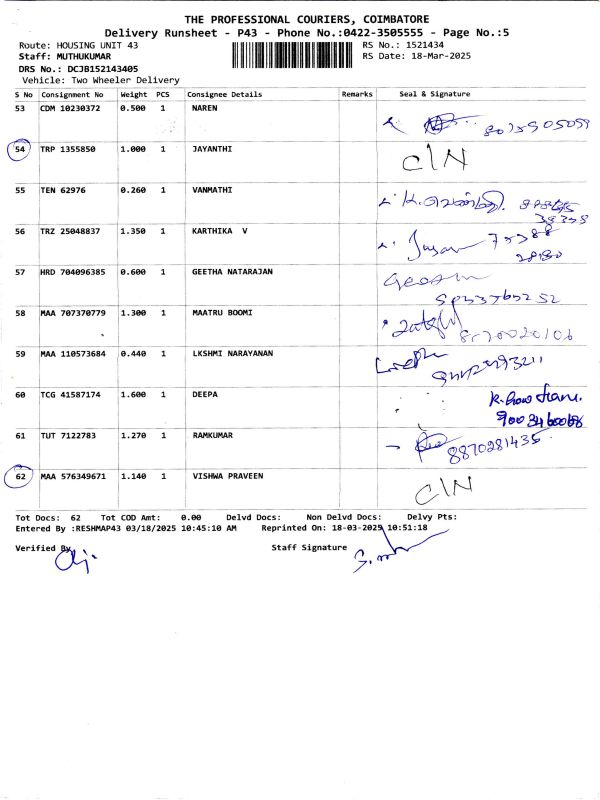 THE PROFESSIONAL COURIERS, COIMBATORE
Delivery Runsheet - P43 - Phone No.:0422-3505555 - Page No.:5
Route: HOUSING UNIT 43 RS No.: 1521434
Staff: MUTHUKUMAR RS Date: 18-Mar-2025
DRS No.: DCJB152143405
Vehicle: Two Wheeler Delivery
S No Consignment No Weight PCS Consignee Details Remarks Seal & Signature
53 CDM 10230372 0.500 1 NAREN
54 TRP 1355850 1.000 1 JAYANTHI C\N
55 TEN 62976 0.260 1 VANMATHI
56 TRZ 25048837 1.350 1 KARTHIKA V
57 HRD 704096385 0.600 1 GEETHA NATARAJAN
58 MAA 707370779 1.300 1 MAATRU BOOMI
59 MAA 110573684 0.440 1 LKSHMI NARAYANAN
60 TCG 41587174 1.600 1 DEEPA
61 TUT 7122783 1.270 1 RAMKUMAR 8870281435
62 MAA 576349671 1.140 1 VISHWA PRAVEEN C\N
Tot Docs: 62 Tot COD Amt: 0.00 Delvd Docs: Non Delvd Docs: Delvy Pts:
Entered By :RESHMAP43 03/18/2025 10:45:10 AM Reprinted On: 18-03-2025 10:51:18
Verified By Staff Signature